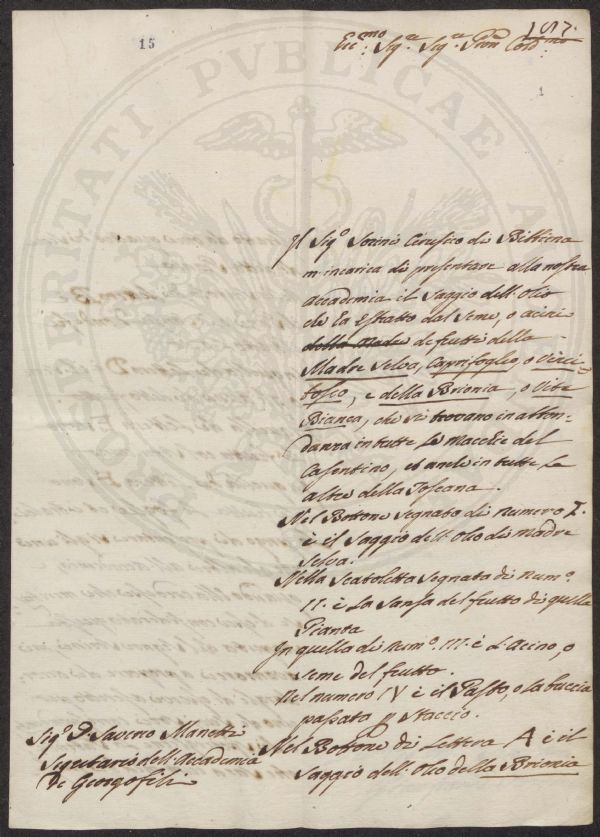 15
157.
Ecc.mo Sig.re Sig.re Pron Col.mo
1
Il Sig.o Sorini Cerusico di Bibbiena
m'incarica di presentare alla nostra
accademia il saggio dell'Olio
che ha estratto dal seme, o acini
della Madre de frutti della
Madre selva, Caprifoglio, o Vinci
bosco, e della Brionia, o Vite
Bianca, che si trovano in abbon-
danza in tutte le macchie del
Casentino, ed anche in tutte le
altre della Toscana.
Nel Bottone segnato di numero I.
è il saggio dell'Olio di Madre
selva.
Nella Scatoletta segnata di Num.o
II. è la Sansa del frutto di quella
Pianta
In quella di Num.o III. è l'Acino, o
seme del frutto.
Nel numero IV è il Pasto, o la buccia
passata p staccio.
Nel Bottone di Lettera A è il
saggio dell'Olio della Brionia
Sig.o D. Saverio Manetti
Segretario dell'Accademia
De Georgofili
PROSPERITATI PVBLICAE A